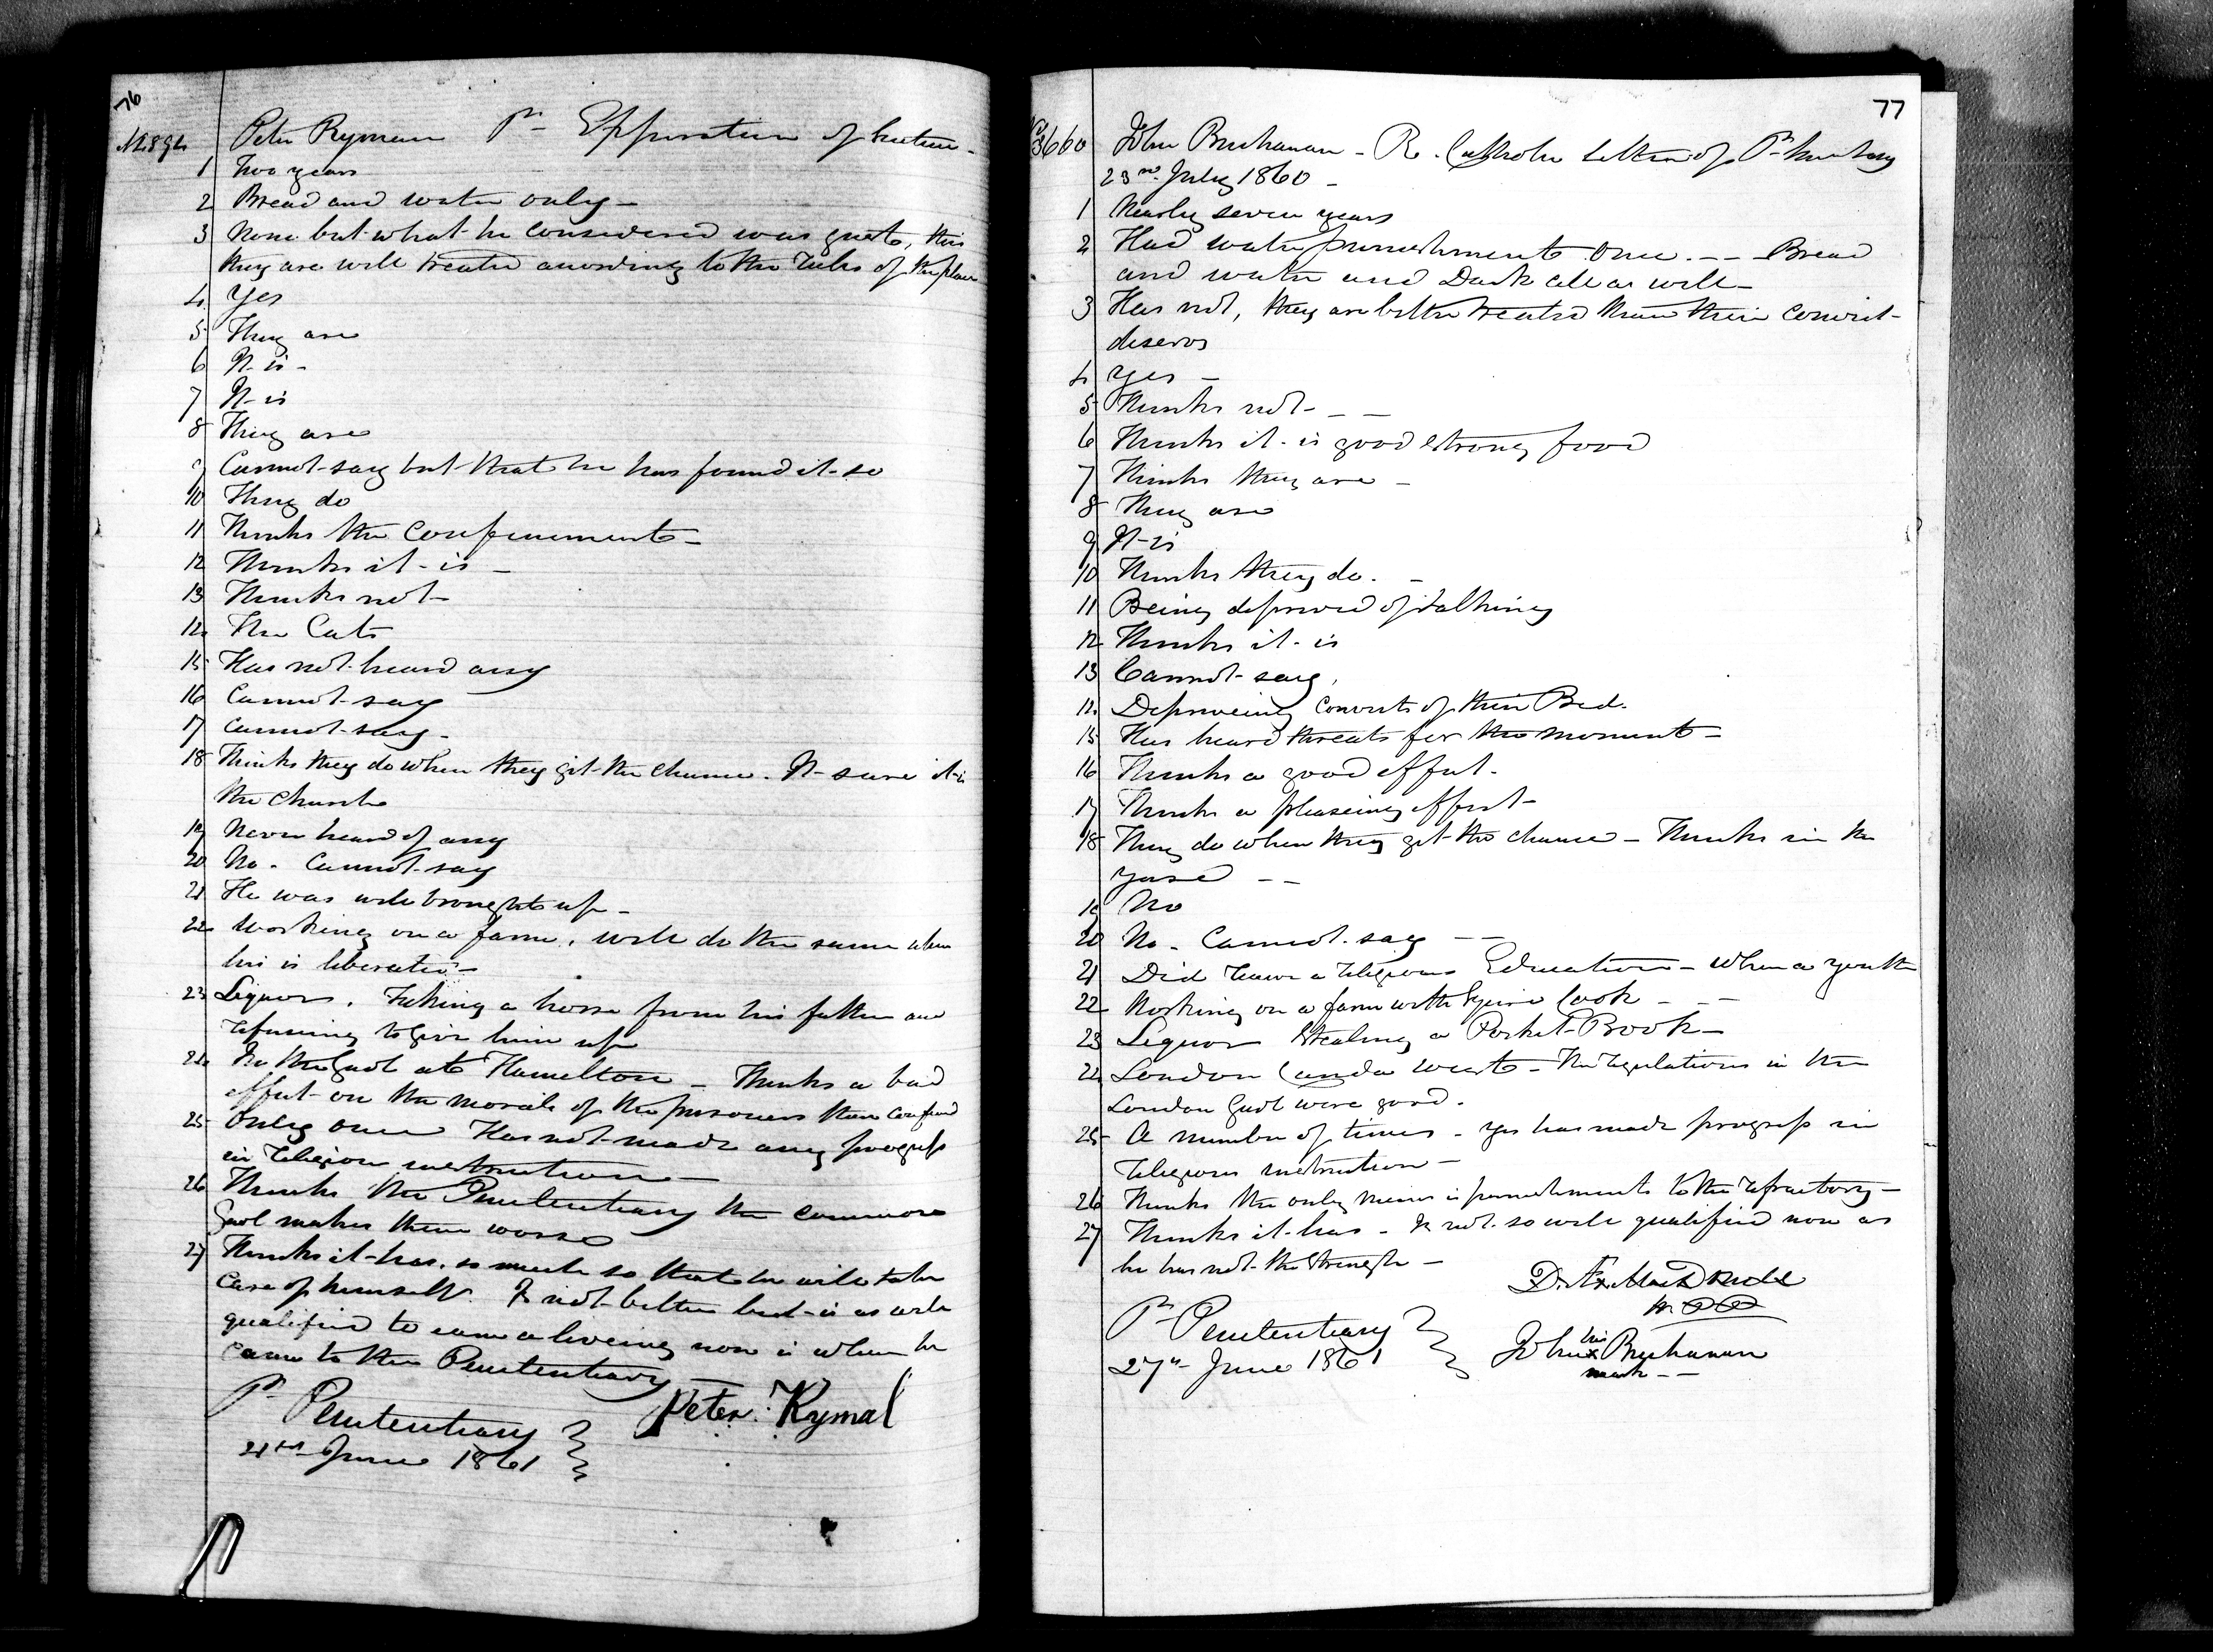 76
Peter Rymau Pr - Expiration of Sentence -
1 Two years
2 Bread and water only -
3 None but what he considered was just, thinks
they are well treated according to the Rules of the place
4 Yes
5 They are
6 It is -
7 It is
8 They are
9 Cannot say but that he has found it so
10 They do
11 Thinks the Confinement -
12 Thinks it is -
13 Thinks not -
14 The Cats
15 Has not heard any
16 Cannot say
17 Cannot say -
18 Thinks they do when they git the chance. It sure it is
the church
19 Never heard of any
20 No - Cannot say
21 He was well brought up -
22 Working on a farm, will do the same when
his is liberated -
23 Liquor. Taking a horse from his father and
refusing to give him up
24 In the Gaol at Hamelton - Thinks a bad
effect on the morals of the prisoners there confined
25 Only once Has not made any progress
in religion instruction -
26 Thinks the Penitentiary the common
Gaol makes them worse
27 Thinks it has, so much so that he will take
care of himself. Is not better but is as well
qualified to earn a liveing now is when he
came to the Penitentiary -
Pr Penitentiary
21st June 1861
Peter Rymal
77
3660 John Buchanan - R. Catholic Pr
23rd July 1860 -
1 Nearly seven years
2 Had water punishment once. - - Bread
and water and Dark cell as well -
3 Has not, they are better treated than their conduct
deserves
4 Yes -
5 Thinks not - - -
6 Thinks it is good strong food
7 Thinks they are -
8 They are
9 It is
10 Thinks they do. -
11 Being deprived of talking
12 Thinks it is
13 Cannot say,
14 Depriveing convicts of their Bed.
15 Has heard threats for the moment -
16 Thinks a good effect.
17 Thinks a pleaseing effect -
18 They do when they get the chance - Thinks in the
yard - -
19 No
20 No - Cannot say - -
21 Did have a religious Education - when a youth
22 Working on a farm with Squire Cook - - -
23 Liquor Stealing a Pocket-Book -
24 London Canda West - The regulations in the
London Gaol were good.
25 A number of times - Yes has made progress in
religious instruction -
26 Thinks the only means is punishments to the refractory -
27 Thinks it has - Is not so well qualified now as
he has not the strength -
Pr Penitentiary
27th June 1861
John his x mark Buchanan